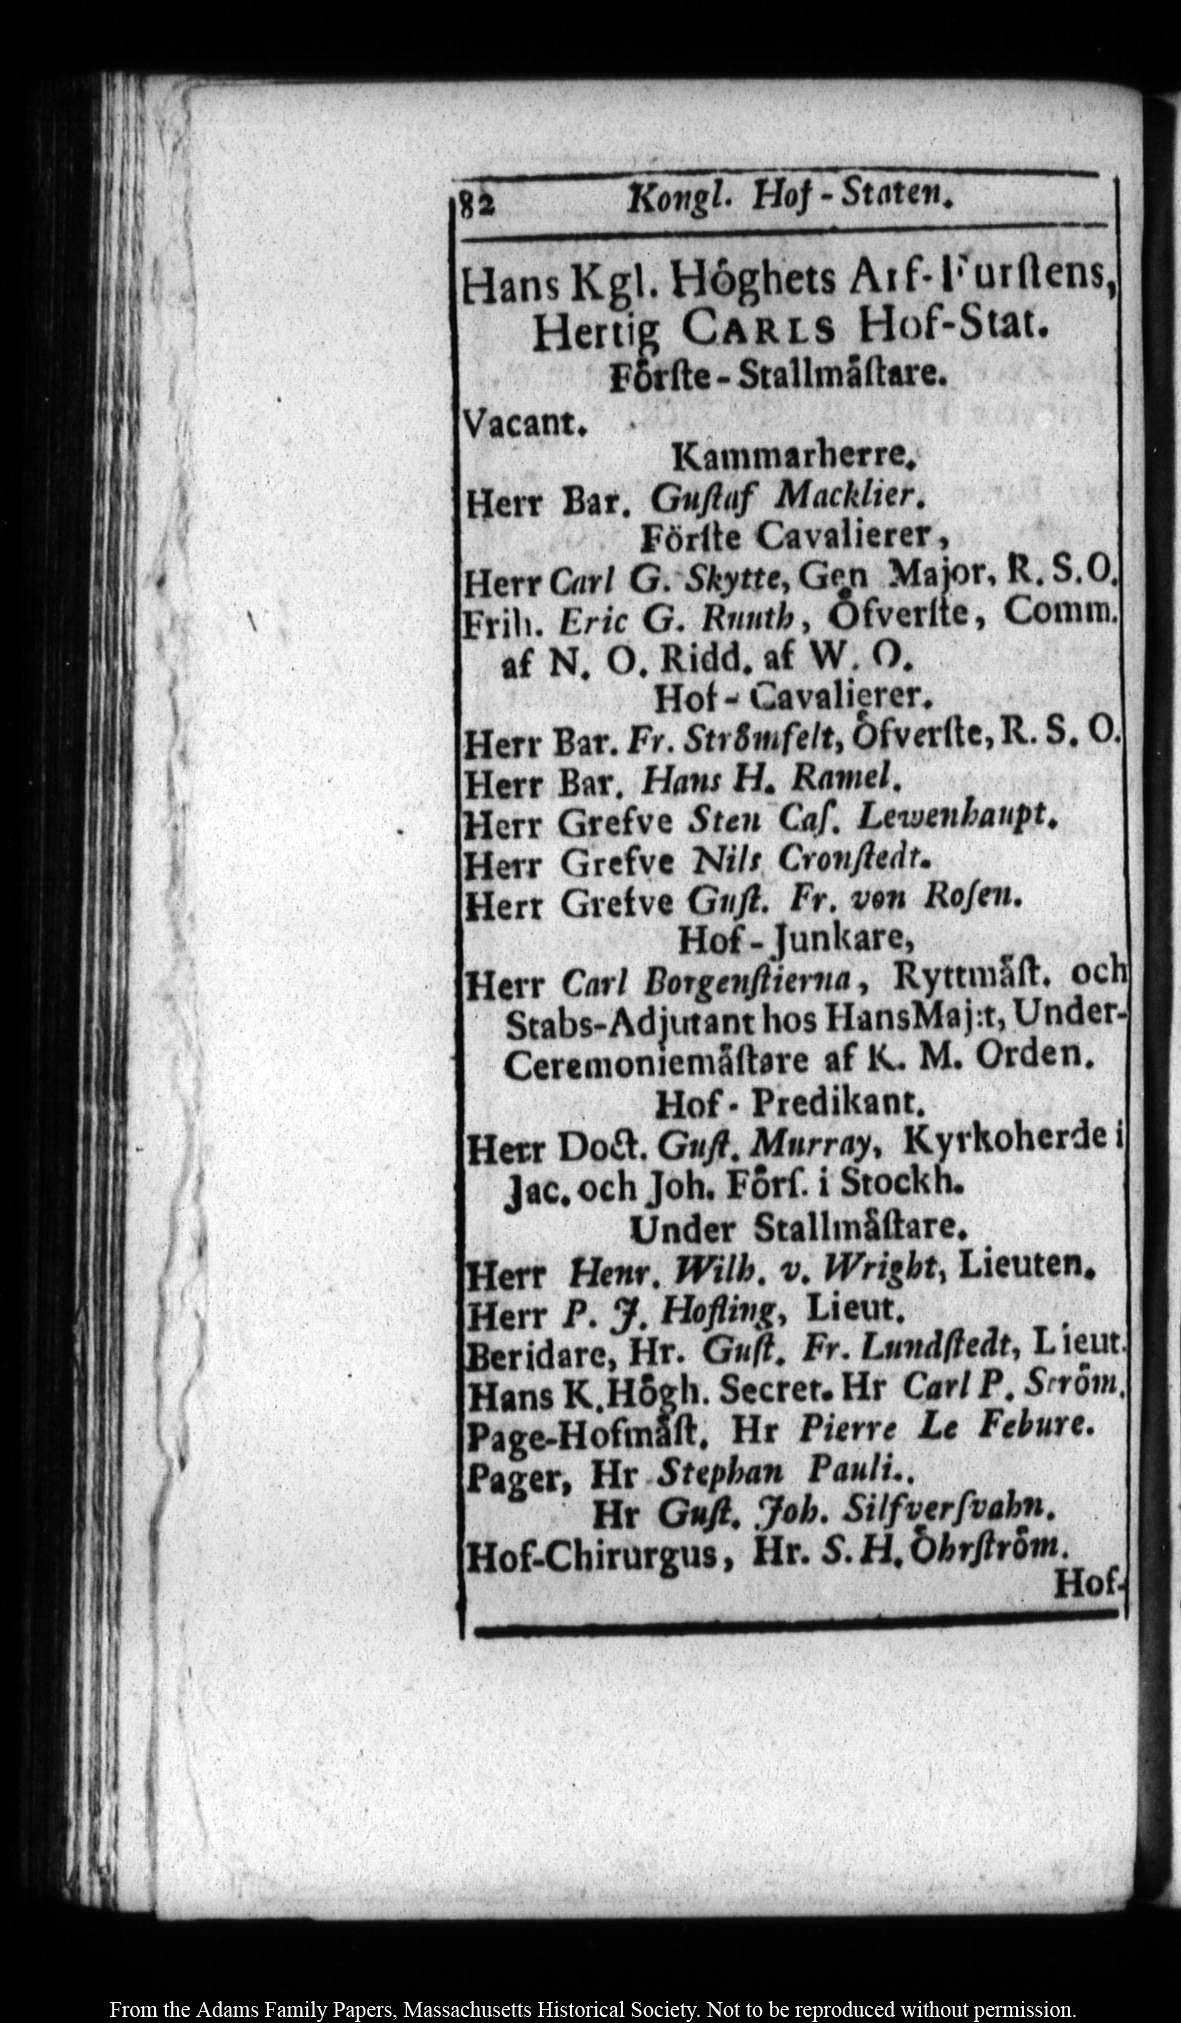 82 Kongl. Hof-Staten.
Hans Kgl. Höghets Arf-Furſtens,
Hertig CARLS Hof-Stat.
Förſte-Stallmåſtare.
Vacant.
Kammarherre.
Herr Bar. Guſtaf Macklier.
Förſte Cavalierer,
Herr Carl G. Skytte, Gen Major, R. S. O.
Frih. Eric G. Ruuth, Öfverſte, Comm.
af N. O. Ridd. af W. O.
Hof-Cavalierer.
Herr Bar. Fr. Strömfelt, öfverſte, R. S. O.
Herr Bar. Hans H. Ramel.
Herr Grefve Sten Caſ. Lewenhaupt.
Herr Grefve Nils Cronſtedt.
Herr Grefve Guſt. Fr. von Roſen.
Hof-Junkare,
Herr Carl Borgenſtierna, Ryttmåſt. och
Stabs-Adjutant hos HansMaj:t, Under-
Ceremoniemåſtare af K. M. Orden.
Hof-Predikant.
Herr Doct. Guſt. Murray, Kyrkoherde i
Jac. och Joh. Förſ. i Stockh.
Under Stallmåſtare.
Herr Henr. Wilh. v. Wright, Lieuten.
Herr P. J. Hofling, Lieut.
Beridare, Hr. Guſt. Fr. Lundſtedt, Lieut.
Hans K. Högh. Secret. Hr Carl P. Ström.
Page-Hofmåſt. Hr Pierre Le Febure.
Pager, Hr Stephan Pauli..
Hr Guſt. Joh. Silfverſvahn.
Hof-Chirurgus, Hr. S. H. Öhrſtröm.
Hof-
From the Adams Family Papers, Massachusetts Historical Society. Not to be reproduced without permission.